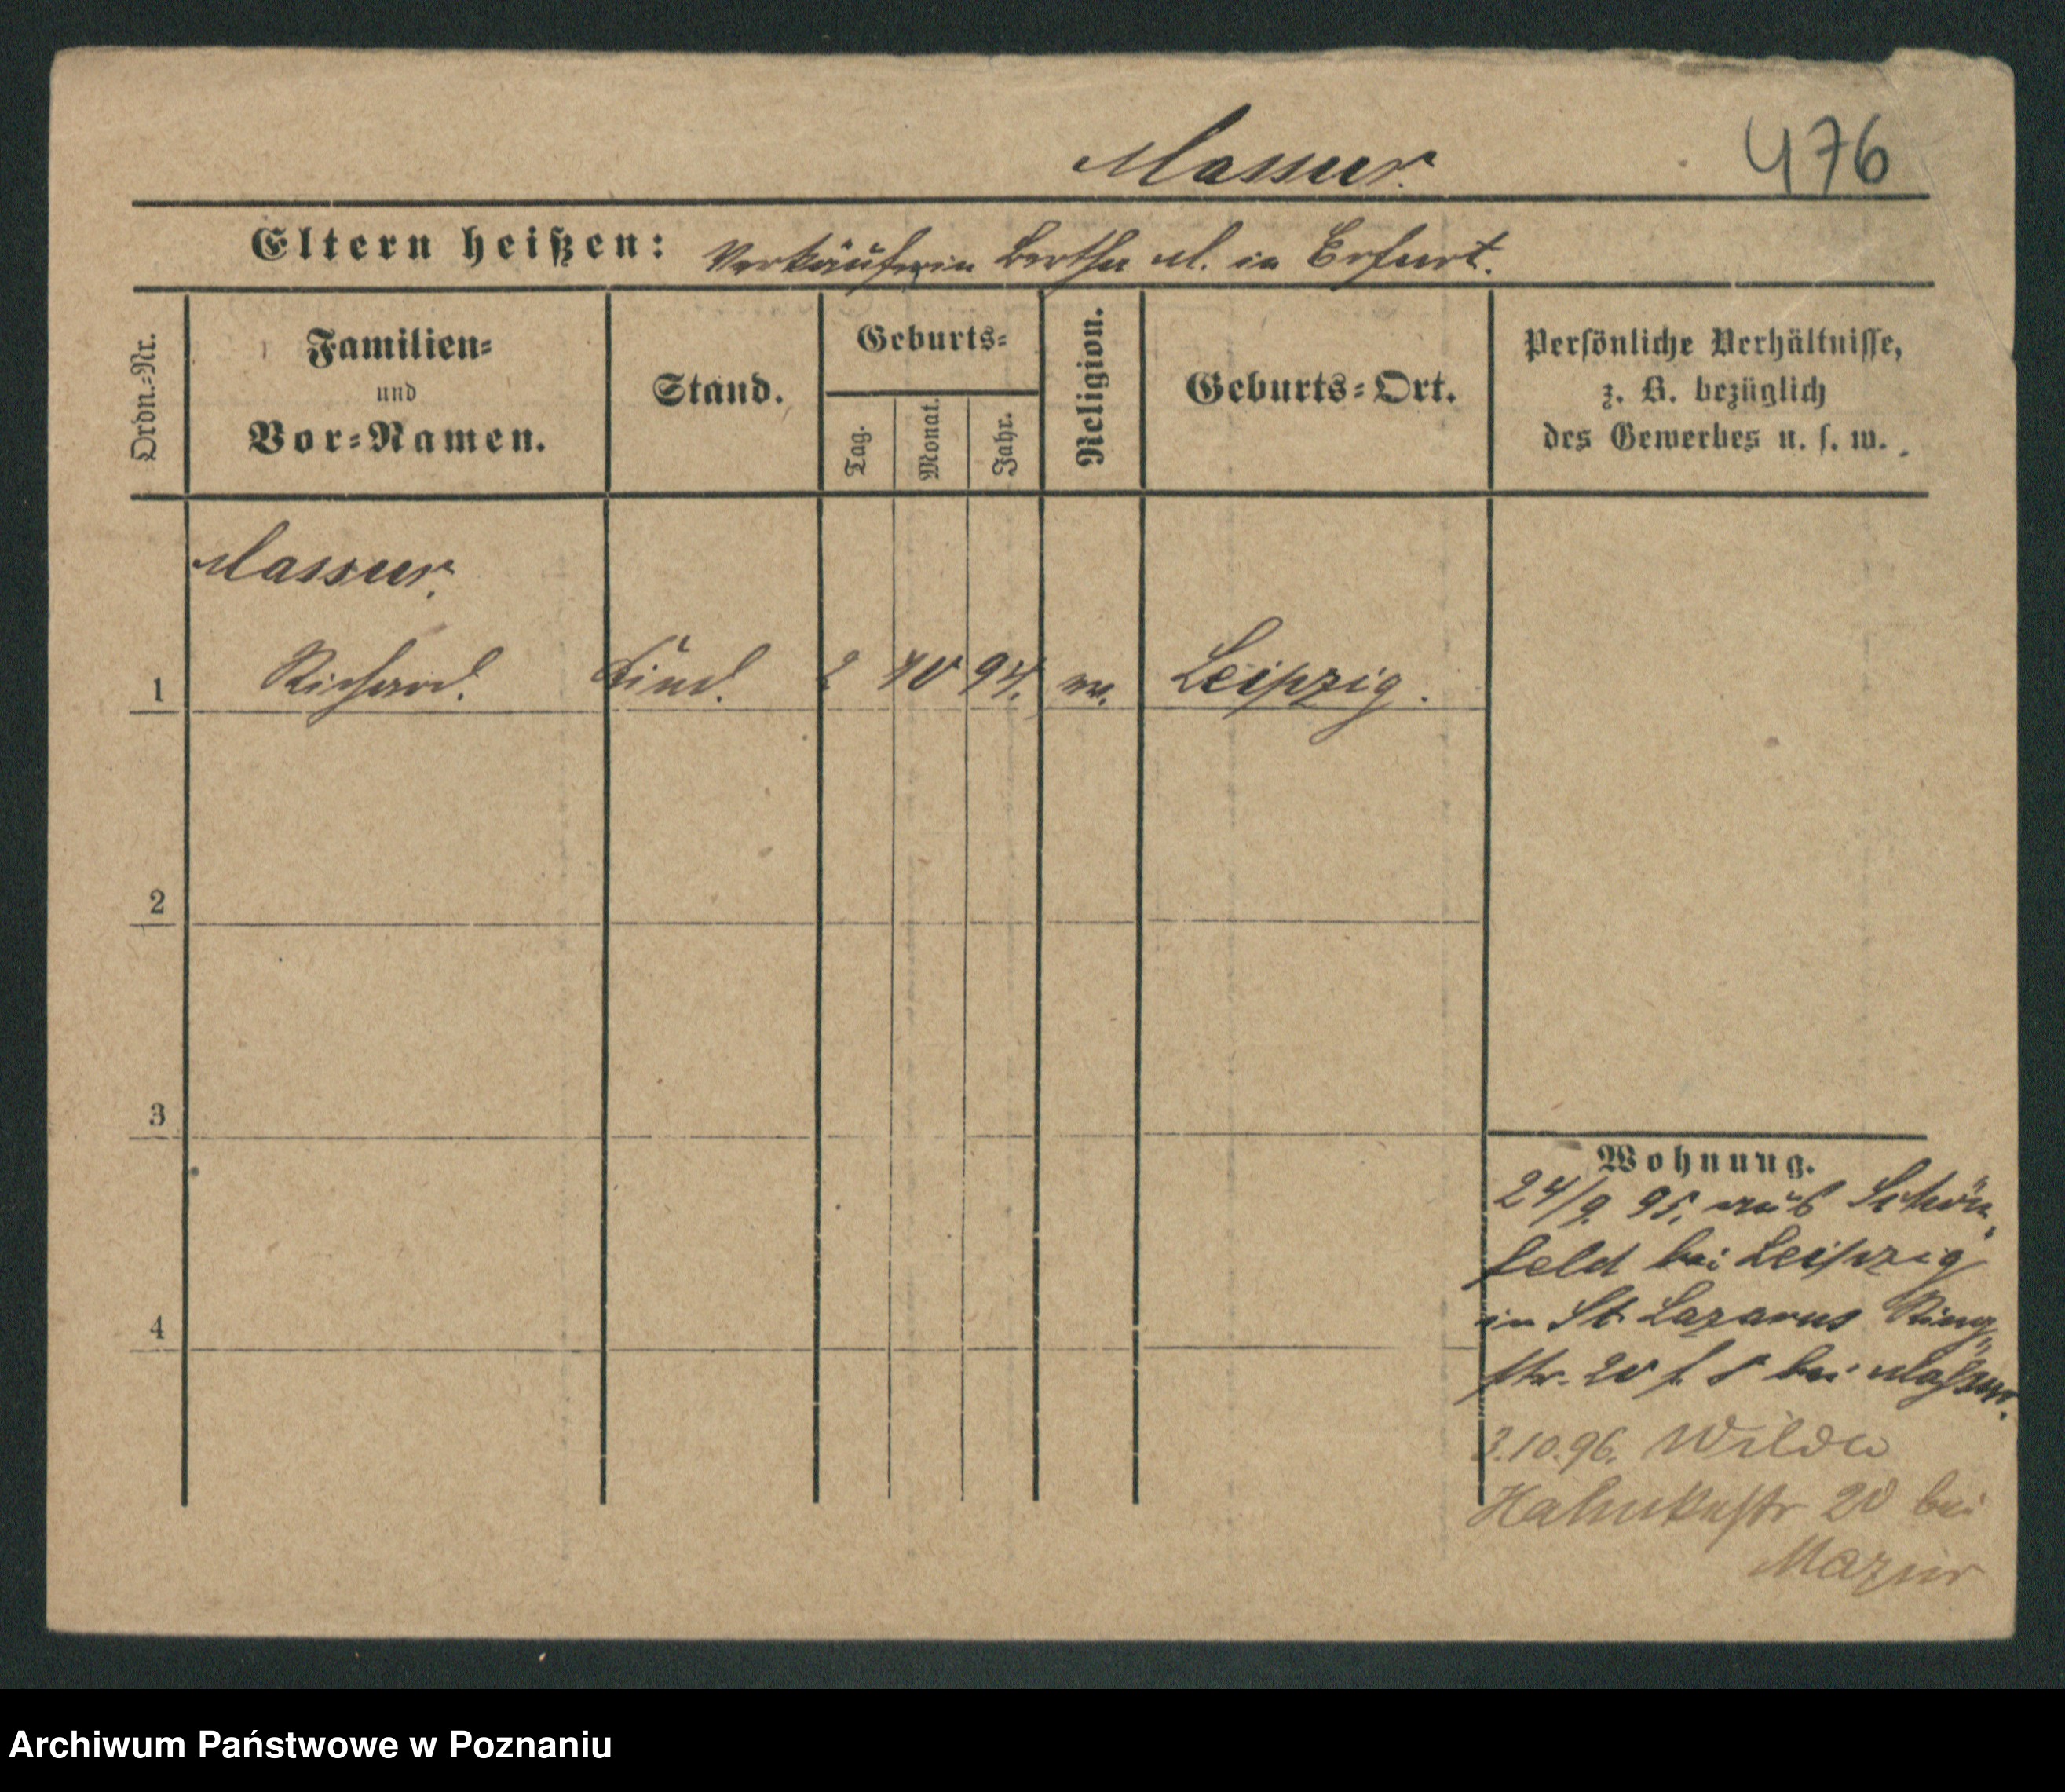 Massur.
476
Eltern heißen: Verkäuferin Bertha M. in Erfurt.
Ordn.=Nr.
Familien=
und
Vor=Namen.
Stand.
Geburts=
Tag.
Monat.
Jahr.
Religion.
Geburts=Ort.
Persönliche Verhältnisse,
z. B. bezüglich
des Gewerbes u. s. w.
Massur.
1 Richard. Kind. 2 10 94. Leipzig.
2
3
4
Wohnung.
24/9. 95. aus Schön
feld bei Leipzig
in St. Lazarus Ring
str. 20 bei Massur.
3.10.96. Wilda
20 bei
Mazur
Archiwum Państwowe w Poznaniu